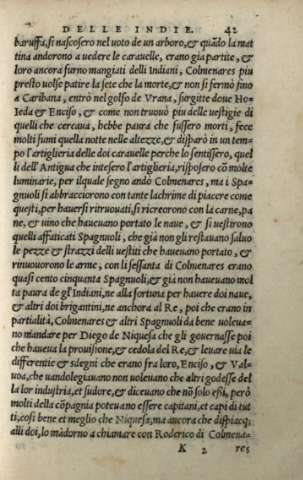 DELLE INDIE. 42
baruffa, si nascosero nel voto de un arboro, & quãdo la mat
tina andorono a vedere le carauelle, erano gia partite, &
loro ancora furno mangiati delli Indiani, Colmenares piu
presto volse patire la sete che la morte, & non si fermò fino
a Caribana, entrò nel golfo de Vrana, surgitte doue Ho-
ieda & Enciso, & come non truouò piu delle vestigie di
quelli che cercaua, hebbe paura che fussero morti, fece
molti fumi quella notte nelle altezze, & disparò in un tem-
po l'artiglierie delle doi carauelle perche lo sentissero, quel
li dell'Antigua che intesero l'artiglieria, risposero cõ molte
luminarie, per ilquale segno andò Colmenares, ma i Spa-
gnuoli si abbracciorono con tante lachrime di piacere come
questi, per hauersi ritruouati, si ricreorono con la carne, pa
ne, & uino che haueuano portato le naue, & si uestirono
quelli affaticati Spagnuoli, che già non gli restauano saluo
le pezze & strazzi delli uestiti che haueuano portato, &
rinuouorono le arme, con li sessanta di Colmenares erano
quasi cento cinquanta Spagnuoli, & già non haueuano mol
ta paura de gl'Indiani, ne alla fortuna per hauere doi naue,
& altri doi brigantini, ne anchora al Re, poi che erano in
partialità, Colmenares & altri Spagnuoli da bene uoleua-
no mandare per Diego de Niquesa che gli gouernasse poi
che haueua la prouisione, & cedola del Re, & leuare uia le
differentie & sdegni che erano fra loro, Enciso, & Val-
uoa, che uandolegiauano non uoleuano che altri godesse del
la lor industria, et sudore, & diceuano che nõ solo essi, però
molti della cõpagnia poteuano essere capitani, et capi di tut
ti, cosi bene et meglio che Niquesa, ma ancora che dispiacqui
alli doi, lo mãdorno a chiamare con Roderico di Colmena-
K 2 res